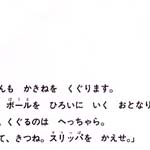 んも かきねを くぐります。
ボールを ひろいに いく おとなり
くぐるのは へっちゃら。
て、きつね。スリッパを かえせ。」